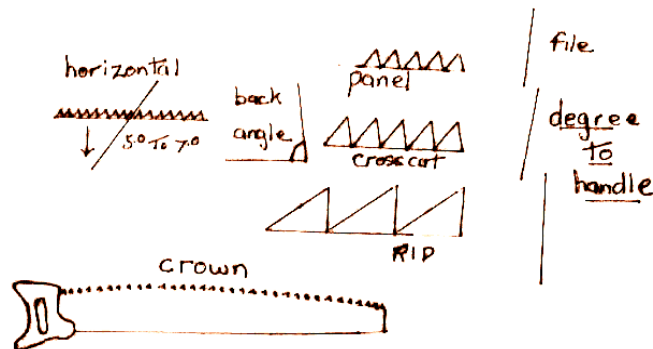 horizontal
5.0 To 7.0
back
angle
panel
crosscut
RIP
file
degree
to
handle
crown